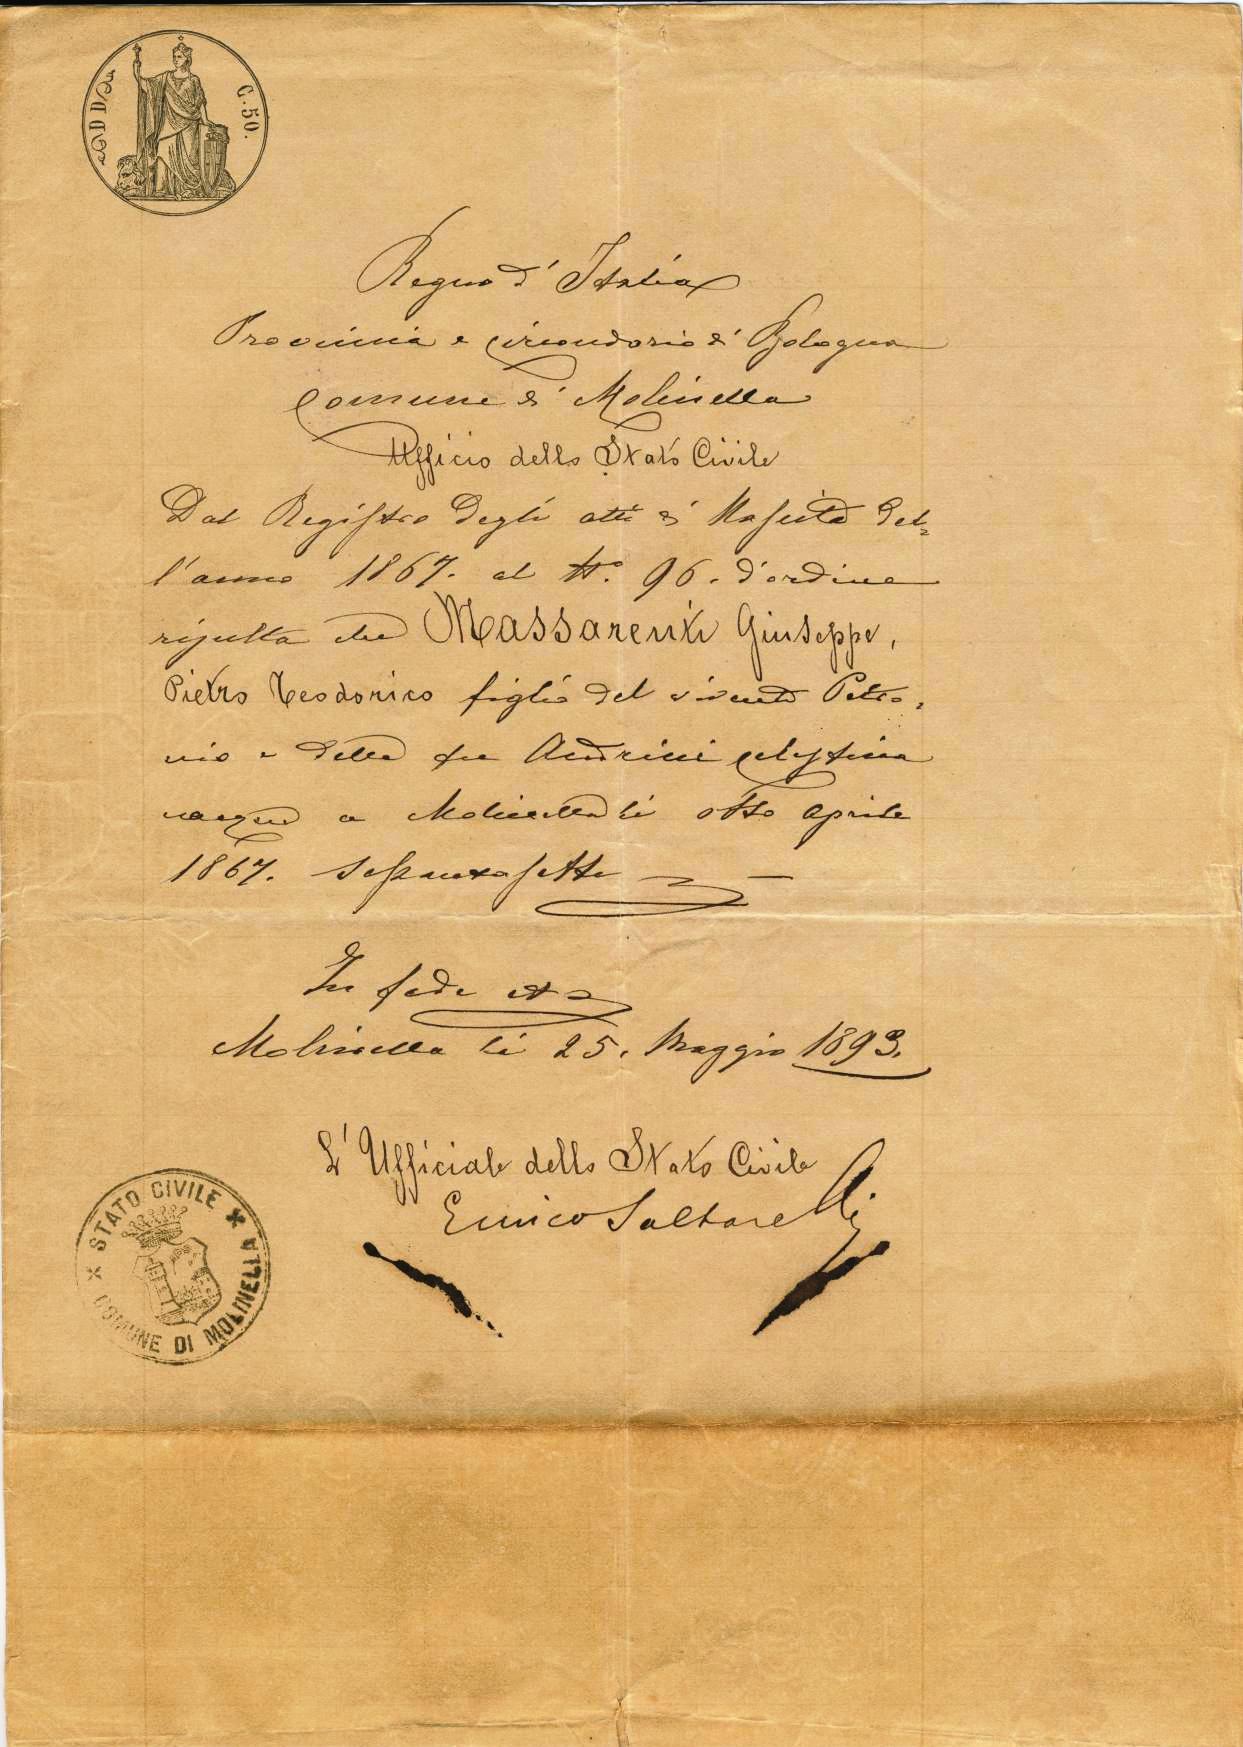 C. 50.
Regno d' Italia
Provincia e circondario di Bologna
Comune di Molinella
Ufficio dello Stato Civile
Dal Registro degli atti di Nascita del=
l'anno 1867. al N.º 96. d'ordine
risulta che Massarenti Giuseppe,
Pietro Teodorico figlio del vivente Petro=
nio e della fu Andrini Celestina
nacque a Molinella li otto Aprile
1867. sessantasette
In fede
Molinella li 25. Maggio 1893.
L' Ufficiale dello Stato Civile
Enrico Saltarelli
STATO CIVILE
COMUNE DI MOLINELLA